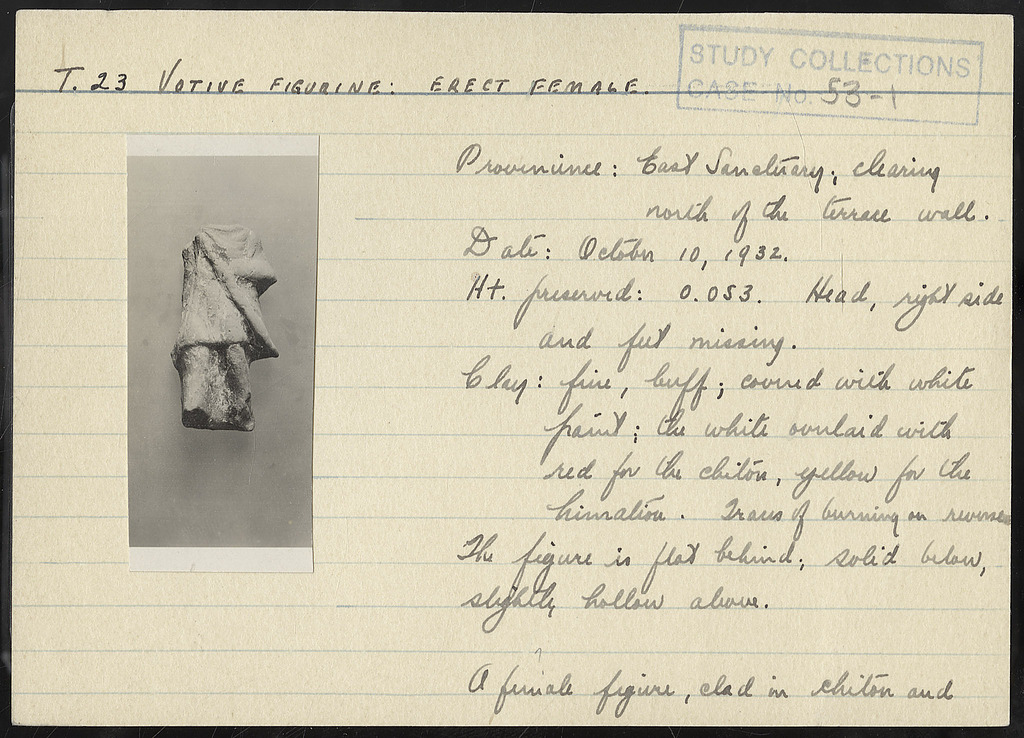 STUDY COLLECTIONS
CASE No. 53-1
T. 23 VOTIVE FIGURINE: ERECT FEMALE.
Provenience: East Sanctuary; clearing
north of the terrace wall.
Date: October 10, 1932.
Ht. preserved: 0.053. Head, right side
and feet missing.
Clay: fine, buff; covered with white
paint; the white overlaid with
red for the chiton, yellow for the
himation. Traces of burning on reverse
The figure is flat behind; solid below,
slightly hollow above.
A female figure, clad in chiton and